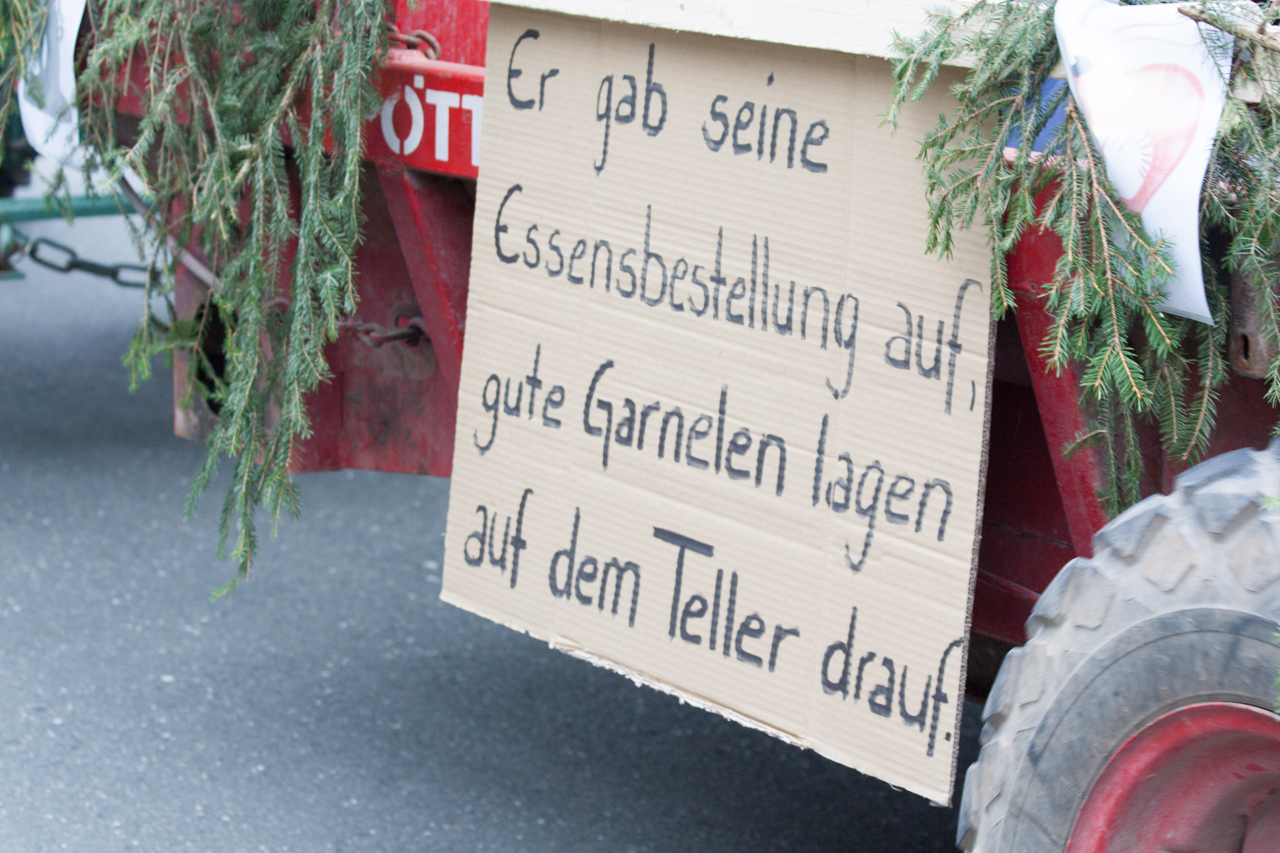 ÖTT
Er gab seine
Essensbestellung auf,
gute Garnelen lagen
auf dem Teller drauf.